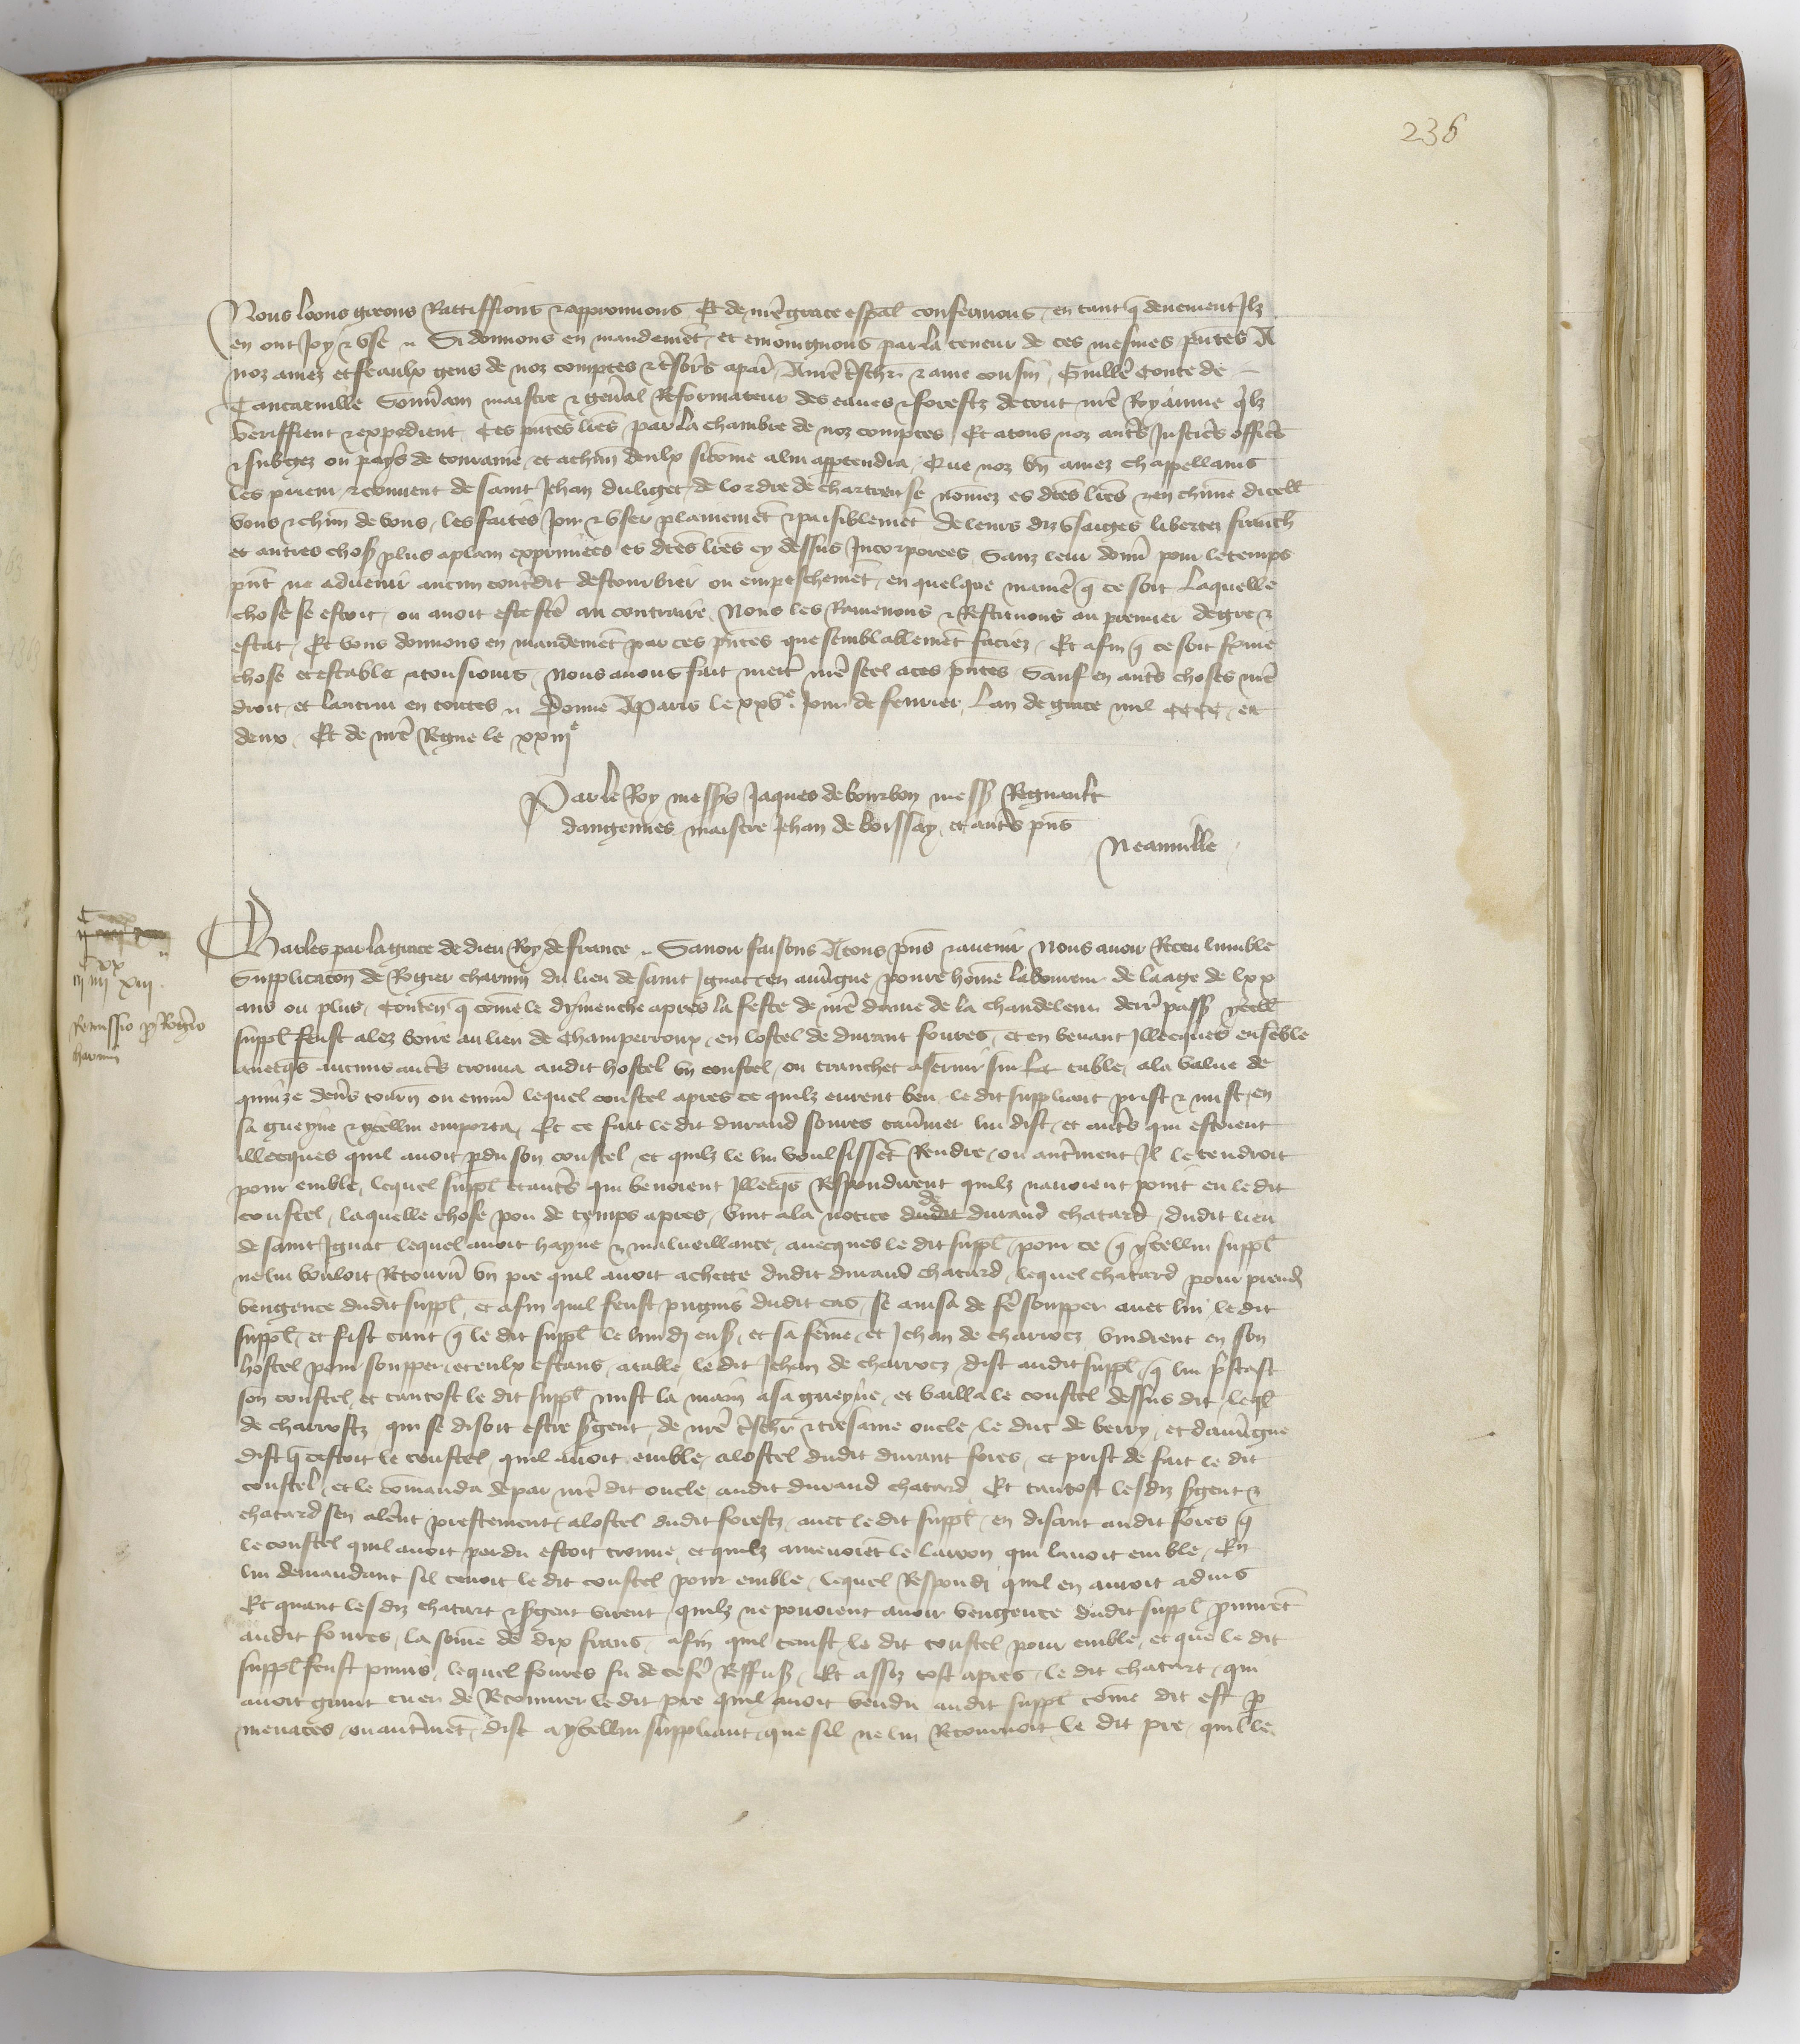 236
Nous loons greons Rattiffions & approuuons Et de nr̃e grace esp̃al confermons en tant q̃ deuement Ilz
en ont Joy & vse Si donnons en mandemẽt et enioingnons par la teneur de ces mesmes p̃ntes A
noz amez et feaulx gens de noz comptes & tr̃esor̃s a par̃ A nr̃e tr̃eschr̃ & ame cousin Guill̃e Conte de
Tancaruille Souu̾ain maistre & gen̾al Reformateur des eaues & forestz de tout nr̃e Royaume q̾lz
veriffient & expedient Ces p̃ntes lr̃es par la chambre de noz comptes Et a tous noz aut̾s Justic̾s offic̾s
& subgez ou pays de touraine et a chũn deulx sicõme a lui app̱tendra Que noz bñ amez chappellains
les prieur & couuent de saint Jehan du liget de lordre de chartreuse nõmez es dc̃es lr̃es & en chũne dicell̃
vous & chũn de vous les faites Joir & vser plainemẽt & paisiblemẽt de leurs diz vsaiges libertez franch̃
et autres chos̾ plus aplain exprimees es dc̃es lr̃es cy dessus Incorporees Sanz leur donñ pour le temps
p̃nt ne aduenir aucun contredit destourbier ou empeschemẽt en quelque manie̾ q̃ ce soit Laquelle
chose se estoit ou auoit este fc̃e au contraire Nous les Ramenons & Restituons au premier degre &
estat Et vous donnons en mandemẽt par ces p̃ntes que semblablemẽt faciez Et afin q̃ ce soit ferme
chose et estable a tousiours Nous auons fait mett̾ nr̃e seel a ces p̃ntes Sauf en aut̾s choses nr̃e
droit et lautrui en toutes Donne A Paris le xxvᵉ Jour de feurier Lan de grace mil CCCC et
deux Et de nr̃e Regne le xxiijᵉ
Par le Roy mess̾s Jaques de bourbon mess̾ Regnault
dangennes maistre Jehan de boissay et aut̾s p̃ns
Neauuille
iij iiijˣˣ xiij
Remissio p̱ Rog̾io
harnin
Charles par la grace de dieu Roy de france Sauoir faisons A tous p̃ns & auenir Nous auoir Receu lumble
Supplicac̃on de Rogier charnin du lieu de saint Ignat en auu̾gne poure hõme laboureur de laage de lxx
ans ou plus Conteñ q̃ cõme le dymenche apres la feste de nr̃e dame de la chandeleur derr̃ pass̾ ycell̃
suppl̃ feust alez boire au lieu de Champerroux en lostel de durant foures et en beuant Illecques enseb̃le
auecq̃s aucuns aut̾s trouua audit hostel vn coustel ou tranchet a seruir sur table a la value de
quinze den̾s tourñ ou enuir̃ lequel coustel apres ce quilz eurent beu le dit suppliant prist & mist en
sa gueyne & ycellui emporta Et ce fait le dit durand foures tauernier lui dist et aut̾s qui estoient
illecques quil auoit perdu son coustel et quilz le lui voulsissẽt Rendre ou aut̾ment Il le tendroit
pour emble lequel suppl̃ et aut̾s qui beuoient Illecq̃s Respondirent quilz nauoient point eu le dit
coustel laquelle chose pou de temps apres vint a la notice de durand chatard dudit lieu
de saint Ignat lequel auoit hayne & malueillance auecques le dit suppl̃ pour ce q̃ ycellui suppl̃
ne lui vouloit Retourñ vn pre quil auoit achette dudit durand chatard lequel chatard pour prendr̃
vengence dudit suppl̃ et afin quil feust pugnis dudit cas se auisa de fe̾ soupper auec lui le dit
suppl̃ et fist tant q̃ le dit suppl̃ le lundj ens̾ et sa fẽme et Jehan de charrocz vindrent en son
hostel pour soupper et eulx estans a table le dit Jehan de charrocz dist audit suppl̃ q̃ lui p̾stast
son coustel et tantost le dit suppl̃ mist la main a sa gueyne et bailla le coustel dessus dit leql̃
de charrostz qui se disoit estre s̾gent de nr̃e tr̃eschr̃ & tresame oncle le duc de berry et dauu̾gne
dist q̃ cestoit le coustel quil auoit emble a lostel dudit durant fores et prist de fait le dit
coustel et le cõmanda de par nr̃e dit oncle audit durand chatard Et tantost lesdiz s̾gent &
chatard sen aler̃nt prestement a lostel dudit forestz auec le dit suppl̃ en disant audit fores q̃
le coustel quil auoit perdu estoit trouue et quilz amenoiẽt le larron qui lauoit emble En
lui demandant sil tenoit le dit coustel pour emble lequel Respondj quil en auroit aduis
Et quant lesdiz chatart & s̾gent virent quilz ne pouoient auoir vengence dudit suppl̃ p̱mirẽt
audit foures la sõme de dix frans afin quil tenist le dit coustel pour emble et que le dit
suppl̃ feust punis lequel foures fu de ce fe̾ Reffus̾ Et assez tost apres le dit chatart qui
auoit grant cuer de Recouurer le dit pre quil auoit vendu audit suppl̃ cõme dit est p̱
menaces ou aut̾mẽt dist a ycellui suppliant que sil ne lui Retournoit le dit pre quil le